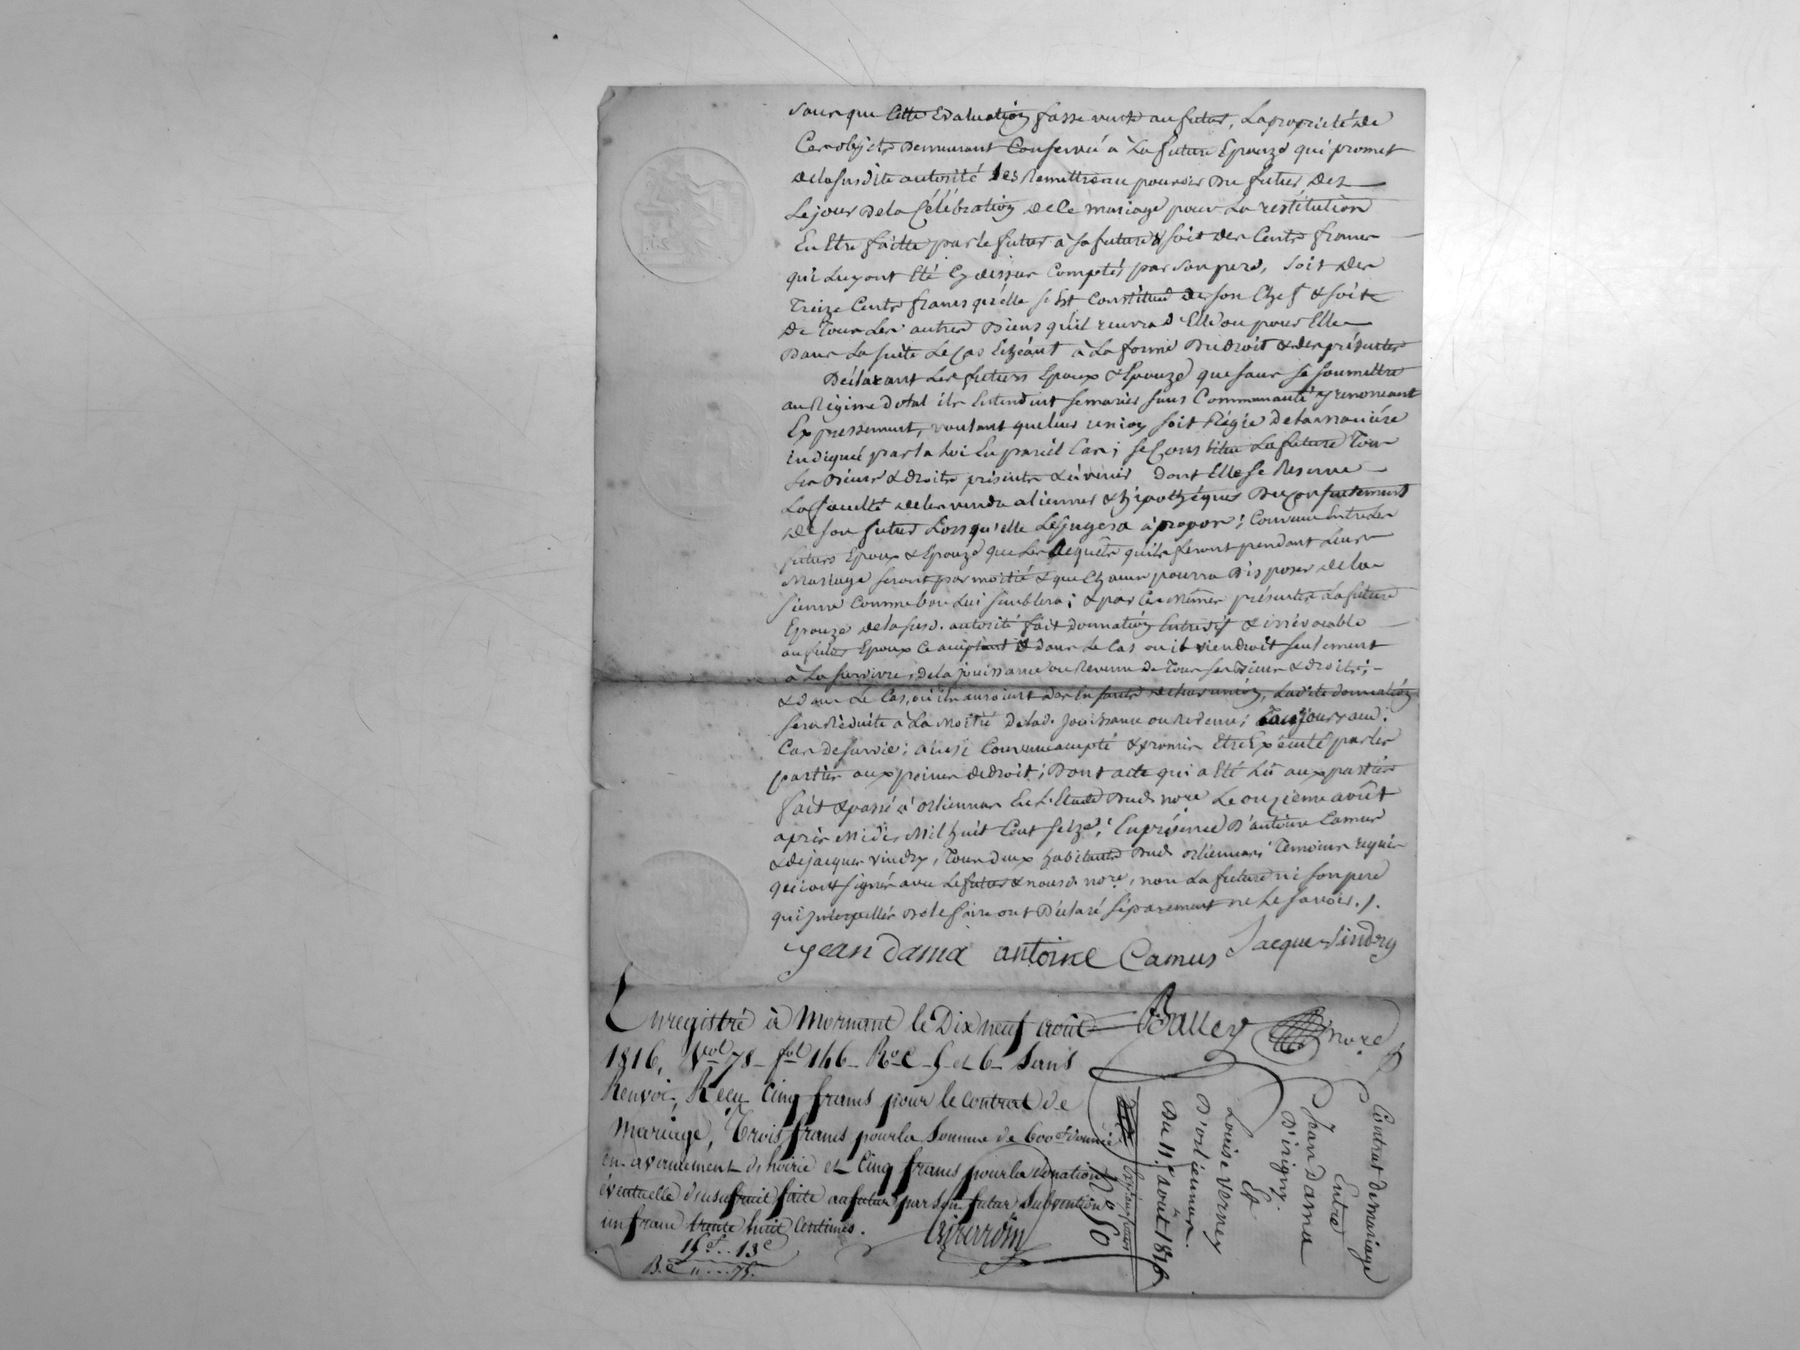 sans que cette Evaluation fasse vente au futur, La propriété de
Ces objets Demeurant Conservée à La future Epouze qui promet
de la susdite autorité Les Remettre au pouvoir Du futur Dez
Le jour De la Célébration de Ce mariage pour La restitution
En Etre faitte par le futur à Sa future & soit des Cents francs
qui Luy ont Eté Cy dessus Comptés par Son pere, Soit Des
Treize Cents francs qu'elle S'est Constitué de son Chef & soit
De Tous Les autres Biens qu'il recevra d'Elle ou pour Elle
Dans La suite Le Cas Echéant à La forme Du droit & des présentes
Déclarant Les futurs Epoux & Epouze que sans se soumettre
au Régime Dotal ils Entendent se marier sans Communauté y renoncant
Expressement, voulant que leur union soit Régie de la maniére
indiquée par la Loi En pareil Cas; se Constitue La future Tous
Ses Biens & droits présents & à venir Dont Elle se Reserve
La faculté de les vendre aliener & hipothéquer Du Consentement
de son futur Lorsqu'elle Le Jugera à propos; Convenu Entre Les
futurs Epoux & Epouze que Les acquêts qu'ils feront pendant Leur
Mariage seront par moitié & que Chacun pourra Disposer de la
sienne Comme bon Lui semblera; & par Ces Mêmes présentes La future
Epouze de la susd. autorité fait donnation Entrevifs & irrévocable
au futur Epoux Ce acceptant & dans Le Cas ou il viendroit seulement
à La survivre, de la jouissance ou Revenu de Tous ses Biens & droits;
& dans Le Cas, où ils auroient des Enfants de leur union, La dite donnation
sera Réduite à La Moitié de lad. jouissance ou Revenu; Toujours aud.
Cas de survie; ainsi Convenu accepté & promis Etre Exécuté par les
parties aux peines de droit; Dont acte qui a Eté Lû aux parties
fait & passé à orliennas En L'Etude Dud. nore Le onzieme août
après Midi, Mil huit Cent seize; En présence D'antoine Camus
& de jacques vindry, Tous deux habitants Dud. orliennas; Temoins requis
qui ont signé avec Le futur & nous d. nore, non La future ni son pere
qui Interpellés De le faire ont Déclaré séparement ne Le savoir./.
jean dama antoine Camus Jacque Vindry
Balley nore
Enregistré à Mornant le Dix neuf août
1816, Vol 78 fol 146 Ro C 5 et 6 Sans
Renvoi, Reçu Cinq francs pour le contrat de
Mariage, Trois francs pour la Somme de 600 f donnée
en avancement d'hoirie et Cinq francs pour la donation
éventuelle d'usufruit faite au futur par Sa future Subvention
un franc trente huit Centimes.
Contrat de mariage
Entre
Jean dama
D'irigny.
Et
Louise verney
D'orliennas.
Du 11 août 1816
No 50